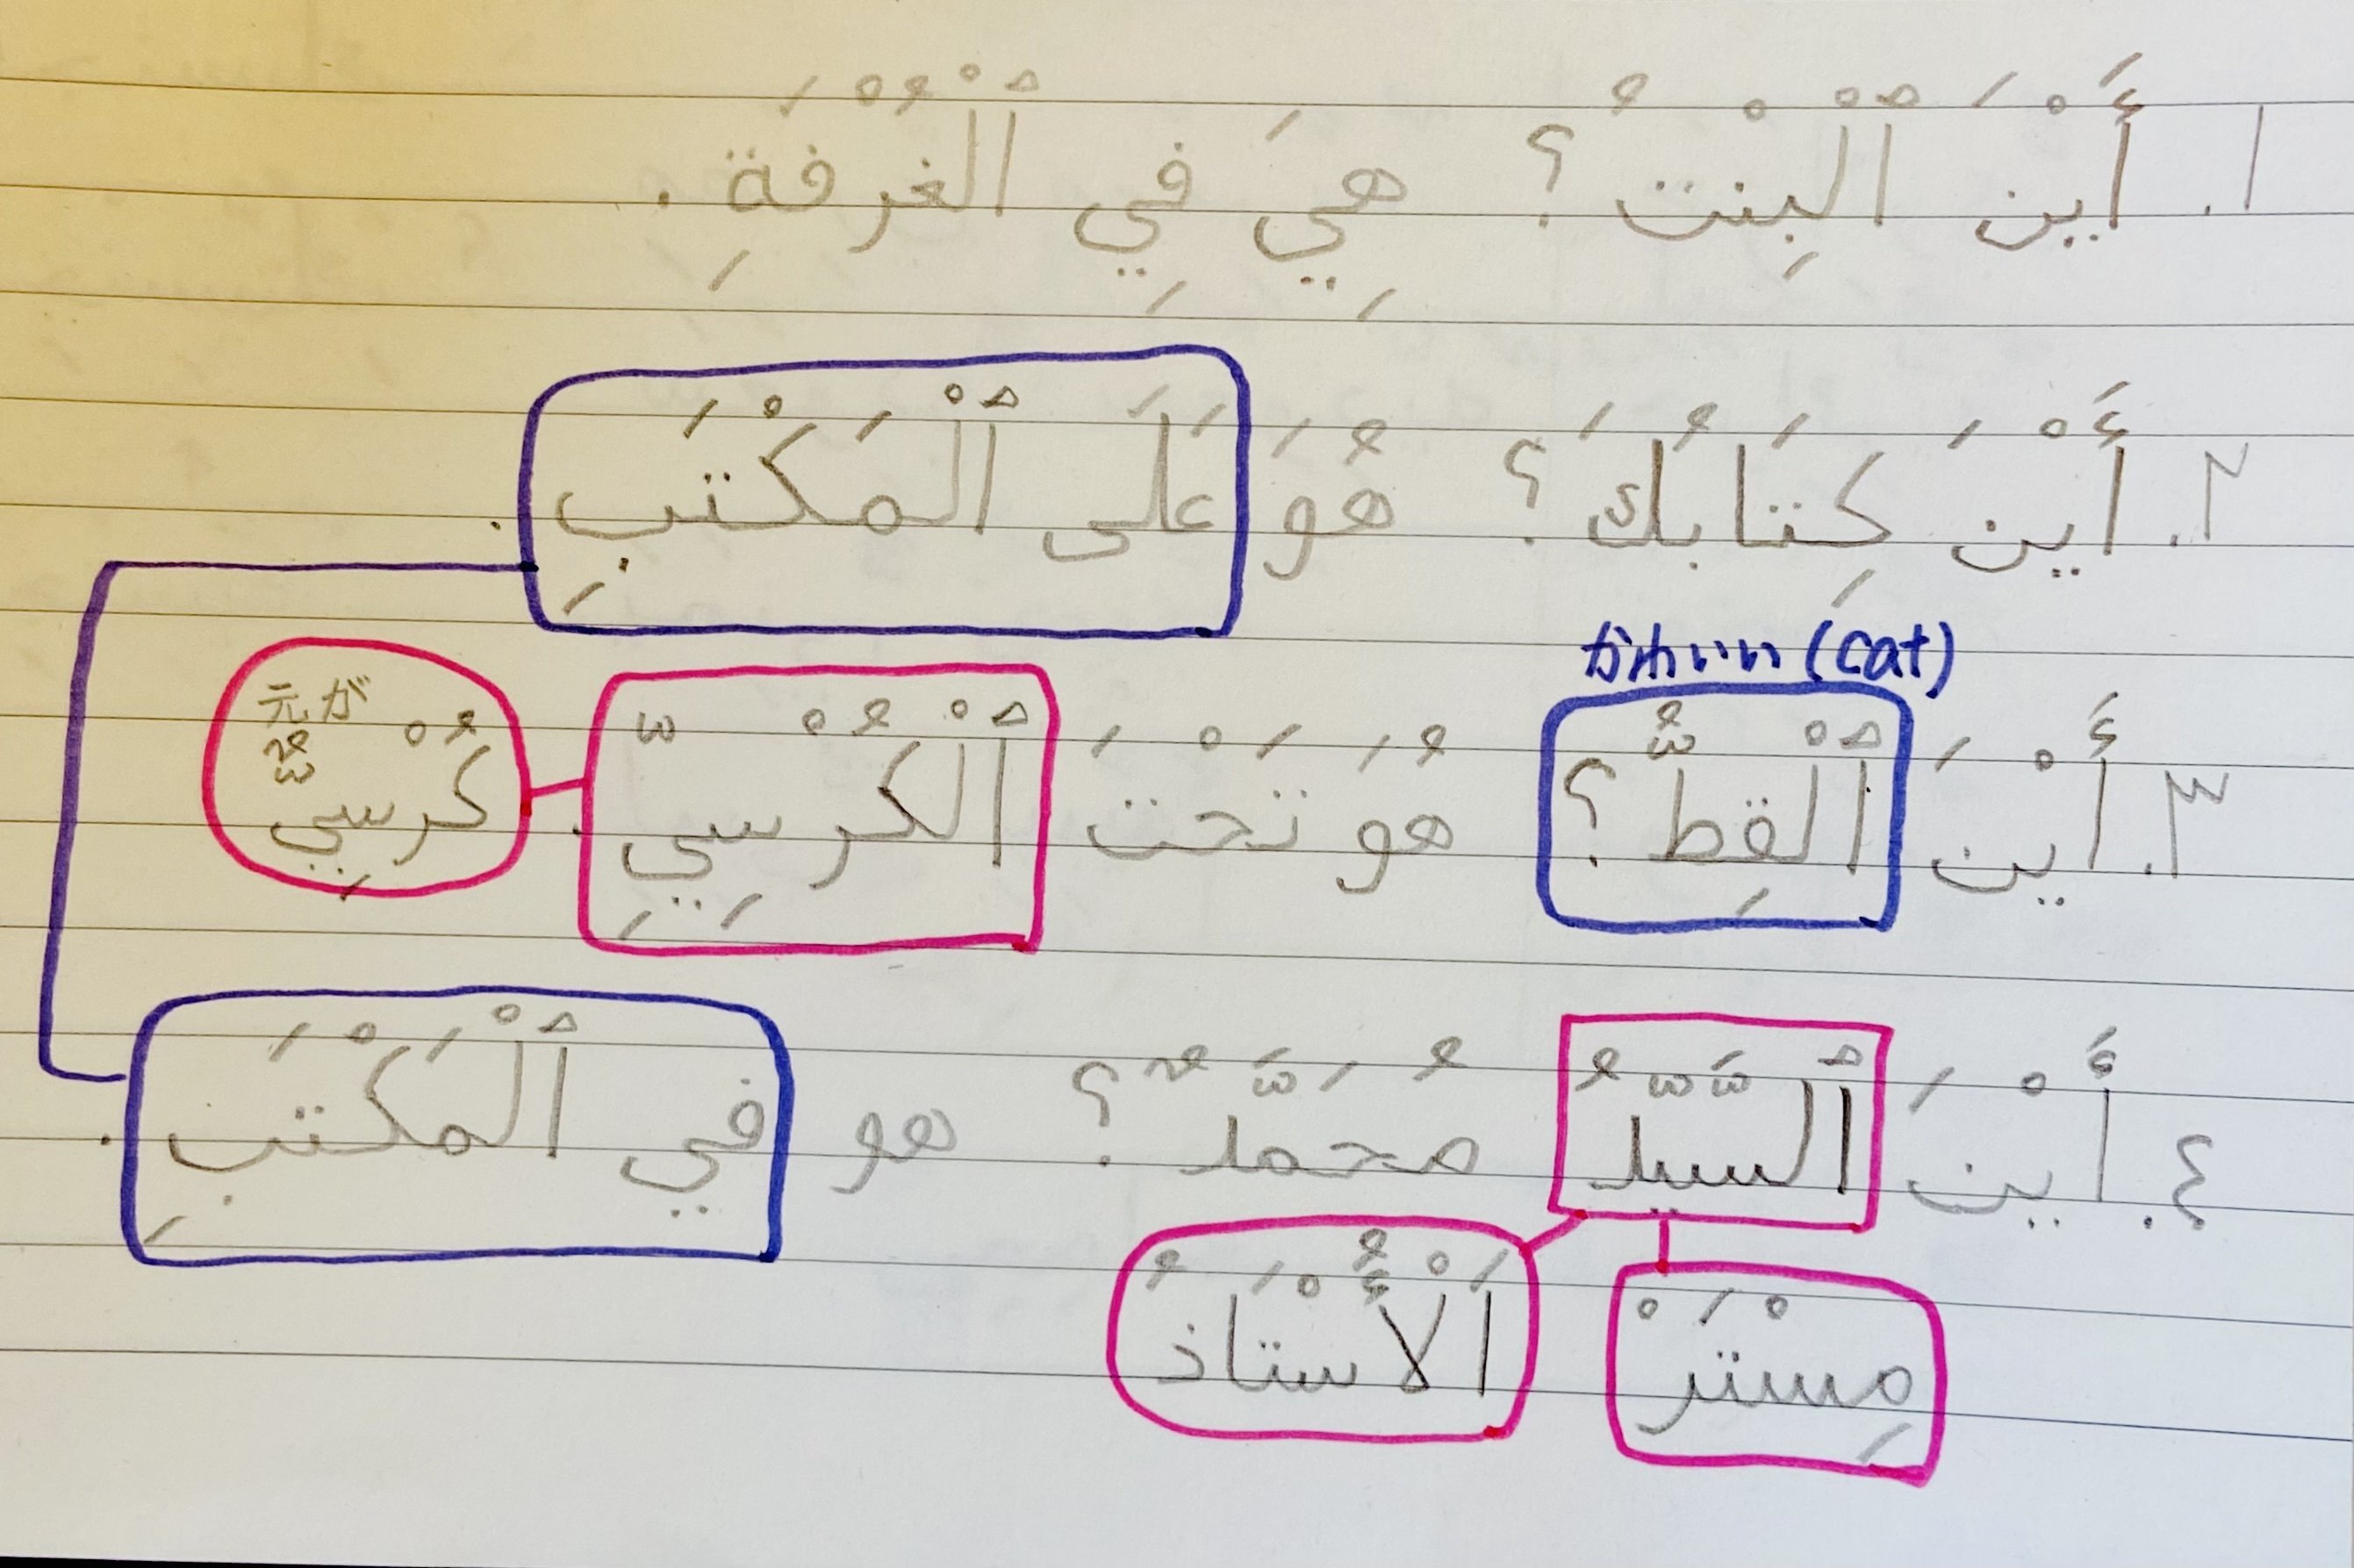 ١. أَيْنَ ٱلْبِنْتُ؟ هِيَ فِي ٱلْغُرْفَةِ.
٢. أَيْنَ كِتَابُكَ؟ هُوَ عَلَى ٱلْمَكْتَبِ.
(cat)
٣. أَيْنَ ٱلْقِطُّ؟ هُوَ تَحْتَ ٱلْكُرْسِيِّ.
元が
كُرْسِيٌّ
٤. أَيْنَ ٱلسَّيِّدُ مُحَمَّدٌ؟ هو في ٱلْمَكْتَبِ.
مِسْتَرْ
اَلْأُسْتَاذُ